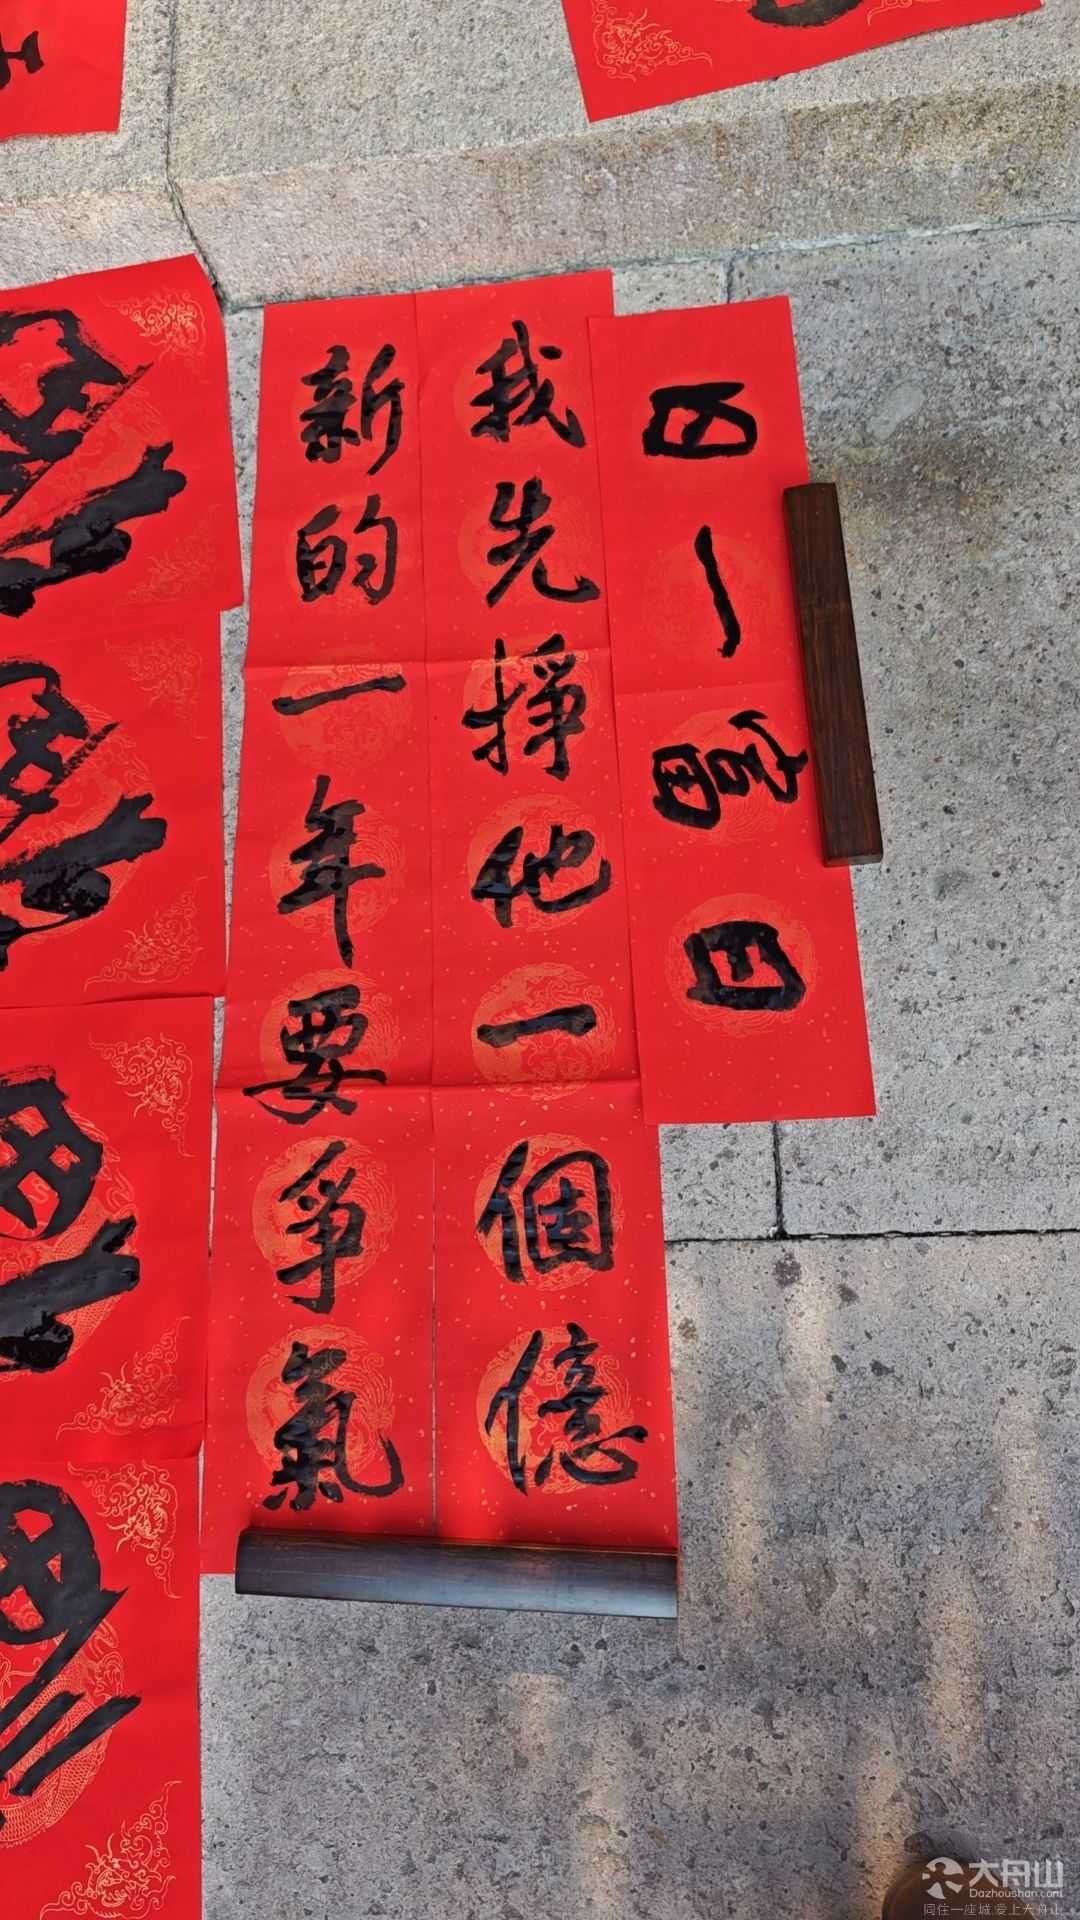 新的一年要爭氣
我先掙他一個億
日富一日
大舟山
Dazhoushan.com
同住一座城,爱上大舟山